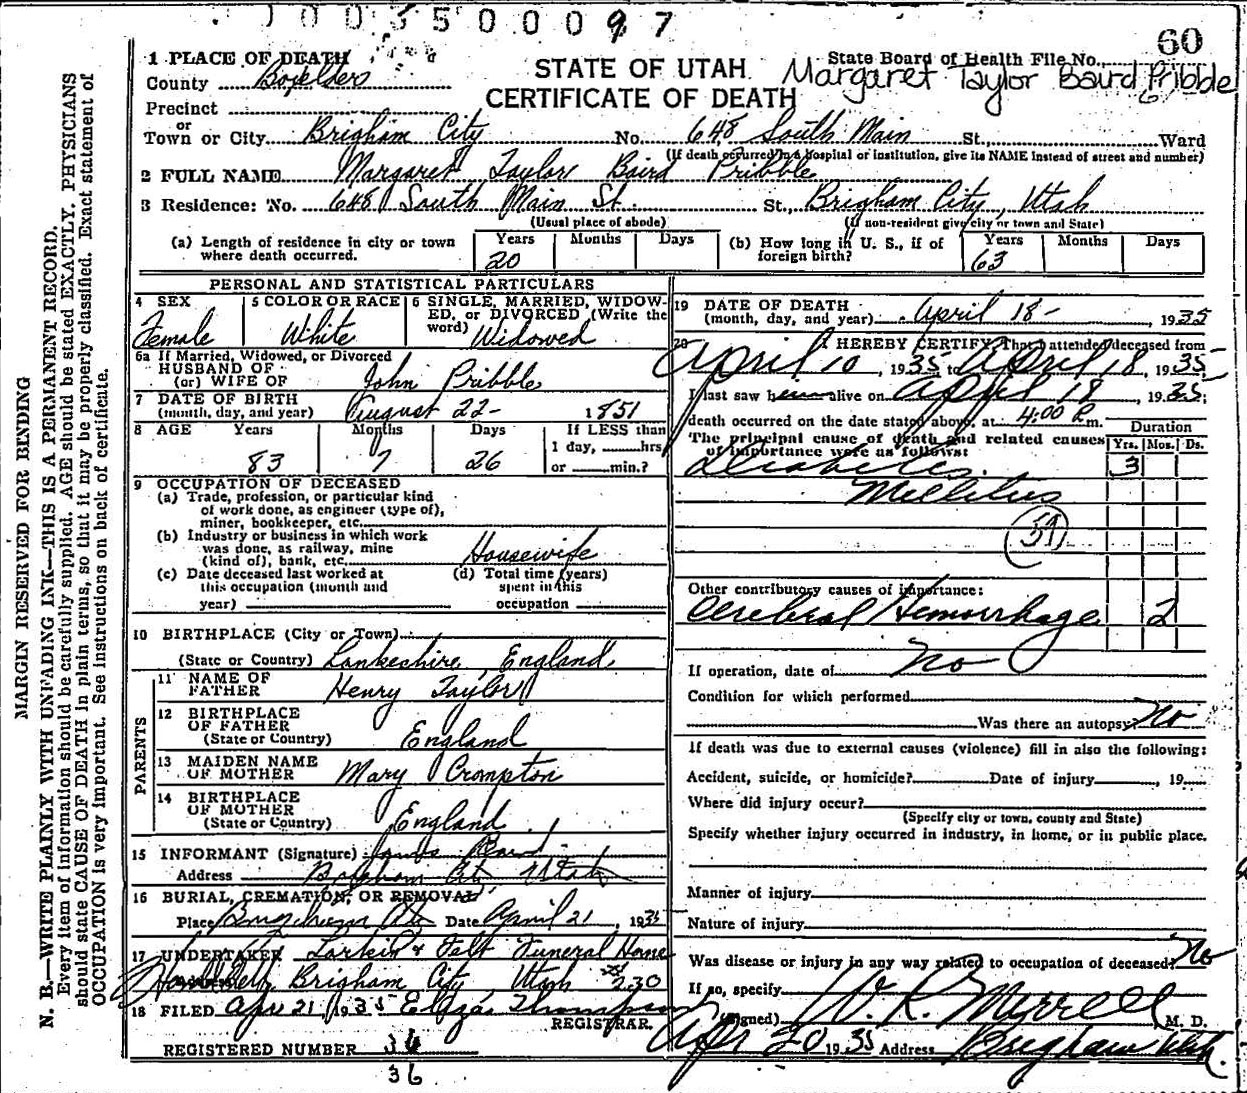 1003500097
60
1 PLACE OF DEATH
State Board of Health File No.
County Boxelder
STATE OF UTAH
Margaret Taylor Baird Pribble
CERTIFICATE OF DEATH
Precinct
or
Town or City Brigham City No. 648 South Main St. Ward
(If death occurred in a hospital or institution, give its NAME instead of street and number)
2 FULL NAME Margaret Taylor Baird Pribble
3 Residence: No. 648 South Main St. St., Brigham City, Utah
(Usual place of abode) (If non-resident give city or town and State)
(a) Length of residence in city or town where death occurred. Years 20 Months Days
(b) How long in U. S., if of foreign birth? Years 63 Months Days
PERSONAL AND STATISTICAL PARTICULARS
4 SEX Female
5 COLOR OR RACE White
6 SINGLE, MARRIED, WIDOWED, or DIVORCED (Write the word) Widowed
6a If Married, Widowed, or Divorced
HUSBAND OF
(or) WIFE OF John Pribble
7 DATE OF BIRTH
(month, day, and year) August 22- 1851
8 AGE Years 83 Months 7 Days 26 If LESS than
1 day, hrs
or min.?
9 OCCUPATION OF DECEASED
(a) Trade, profession, or particular kind
of work done, as engineer (type of),
miner, bookkeeper, etc.
(b) Industry or business in which work
was done, as railway, mine
(kind of), bank, etc. Housewife
(c) Date deceased last worked at
this occupation (month and
year)
(d) Total time (years)
spent in this
occupation
10 BIRTHPLACE (City or Town)
(State or Country) Lankechire, England
PARENTS
11 NAME OF
FATHER Henry Taylor
12 BIRTHPLACE
OF FATHER
(State or Country) England
13 MAIDEN NAME
OF MOTHER Mary Crompton
14 BIRTHPLACE
OF MOTHER
(State or Country) England
15 INFORMANT (Signature) James Baird
Address Brigham City Utah
16 BURIAL, CREMATION, OR REMOVAL
Place Brigham City Date April 21 1935
17 UNDERTAKER Larkin & Felt Funeral Home
Brigham City, Utah 230
18 FILED Apr 21 1935 Eliza Thompson
REGISTRAR.
REGISTERED NUMBER 36
36
19 DATE OF DEATH
(month, day, and year) April 18- 1935
20 I HEREBY CERTIFY, That I attended deceased from
April 10, 1935 to April 18, 1935
I last saw him alive on April 18, 1935;
death occurred on the date stated above, at 4:00 P. m.
The principal cause of death and related causes
of importance were as follows:
Duration
Yrs. Mos. Ds.
Diabetes 3
Mellitus
59
Other contributory causes of importance:
Cerebral Hemorrhage 2
If operation, date of No
Condition for which performed
Was there an autopsy? No
If death was due to external causes (violence) fill in also the following:
Accident, suicide, or homicide? Date of injury, 19
Where did injury occur?
(Specify city or town, county and State)
Specify whether injury occurred in industry, in home, or in public place.
Manner of injury
Nature of injury
Was disease or injury in any way related to occupation of deceased? No
If so, specify
(Signed) W. R. Merrell M. D.
Apr 20 1935 Address Brigham Utah.
MARGIN RESERVED FOR BINDING
N. B.—WRITE PLAINLY WITH UNFADING INK—THIS IS A PERMANENT RECORD.
Every item of information should be carefully supplied. AGE should be stated EXACTLY. PHYSICIANS
should state CAUSE OF DEATH in plain terms, so that it may be properly classified. Exact statement of
OCCUPATION is very important. See instructions on back of certificate.